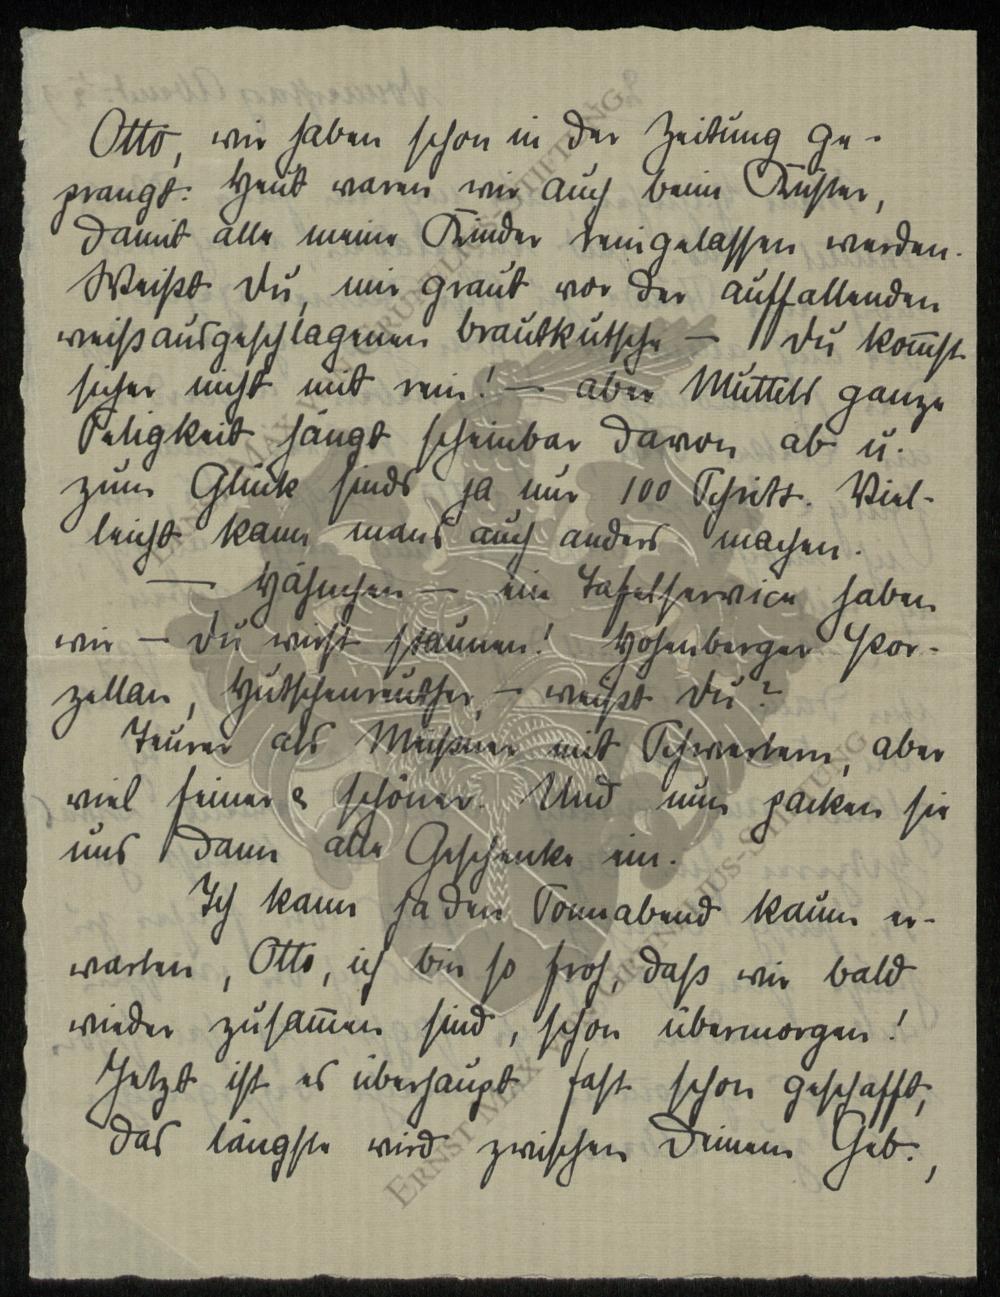 Otto, wir haben schon in der Zeitung ge-
prangt. Heut waren wir auch beim Küster,
damit alle meine Kinder reingelassen werden.
Weißt Du, mir graut vor der auffallenden
weißausgeschlagenen Brautkutsche – Du kom̅st
sicher nicht mit rein! – aber Muttels ganze
Seligkeit hängt scheinbar davon ab u.
zum Glück sinds ja nur 100 Schritt. Viel-
leicht kann mans auch anders machen.
– Hähnchen – ein Tafelservice haben
wir – Du wirst staunen! Hohenberger Por-
zellan, Hutschenreuther, – weißt Du?
Teurer als Meißner mit Schwertern, aber
viel feiner & schöner. Und nun packen sie
uns dann alle Geschenke ein.
Ich kann ja den Sonnabend kaum er-
warten, Otto, ich bin so froh, daß wir bald
wieder zusam̅en sind, schon übermorgen!
Jetzt ist es überhaupt fast schon geschafft;
das längste wird zwischen Deinem Geb.,
ERNST MAX
GRUNELIUS-STIFTUNG